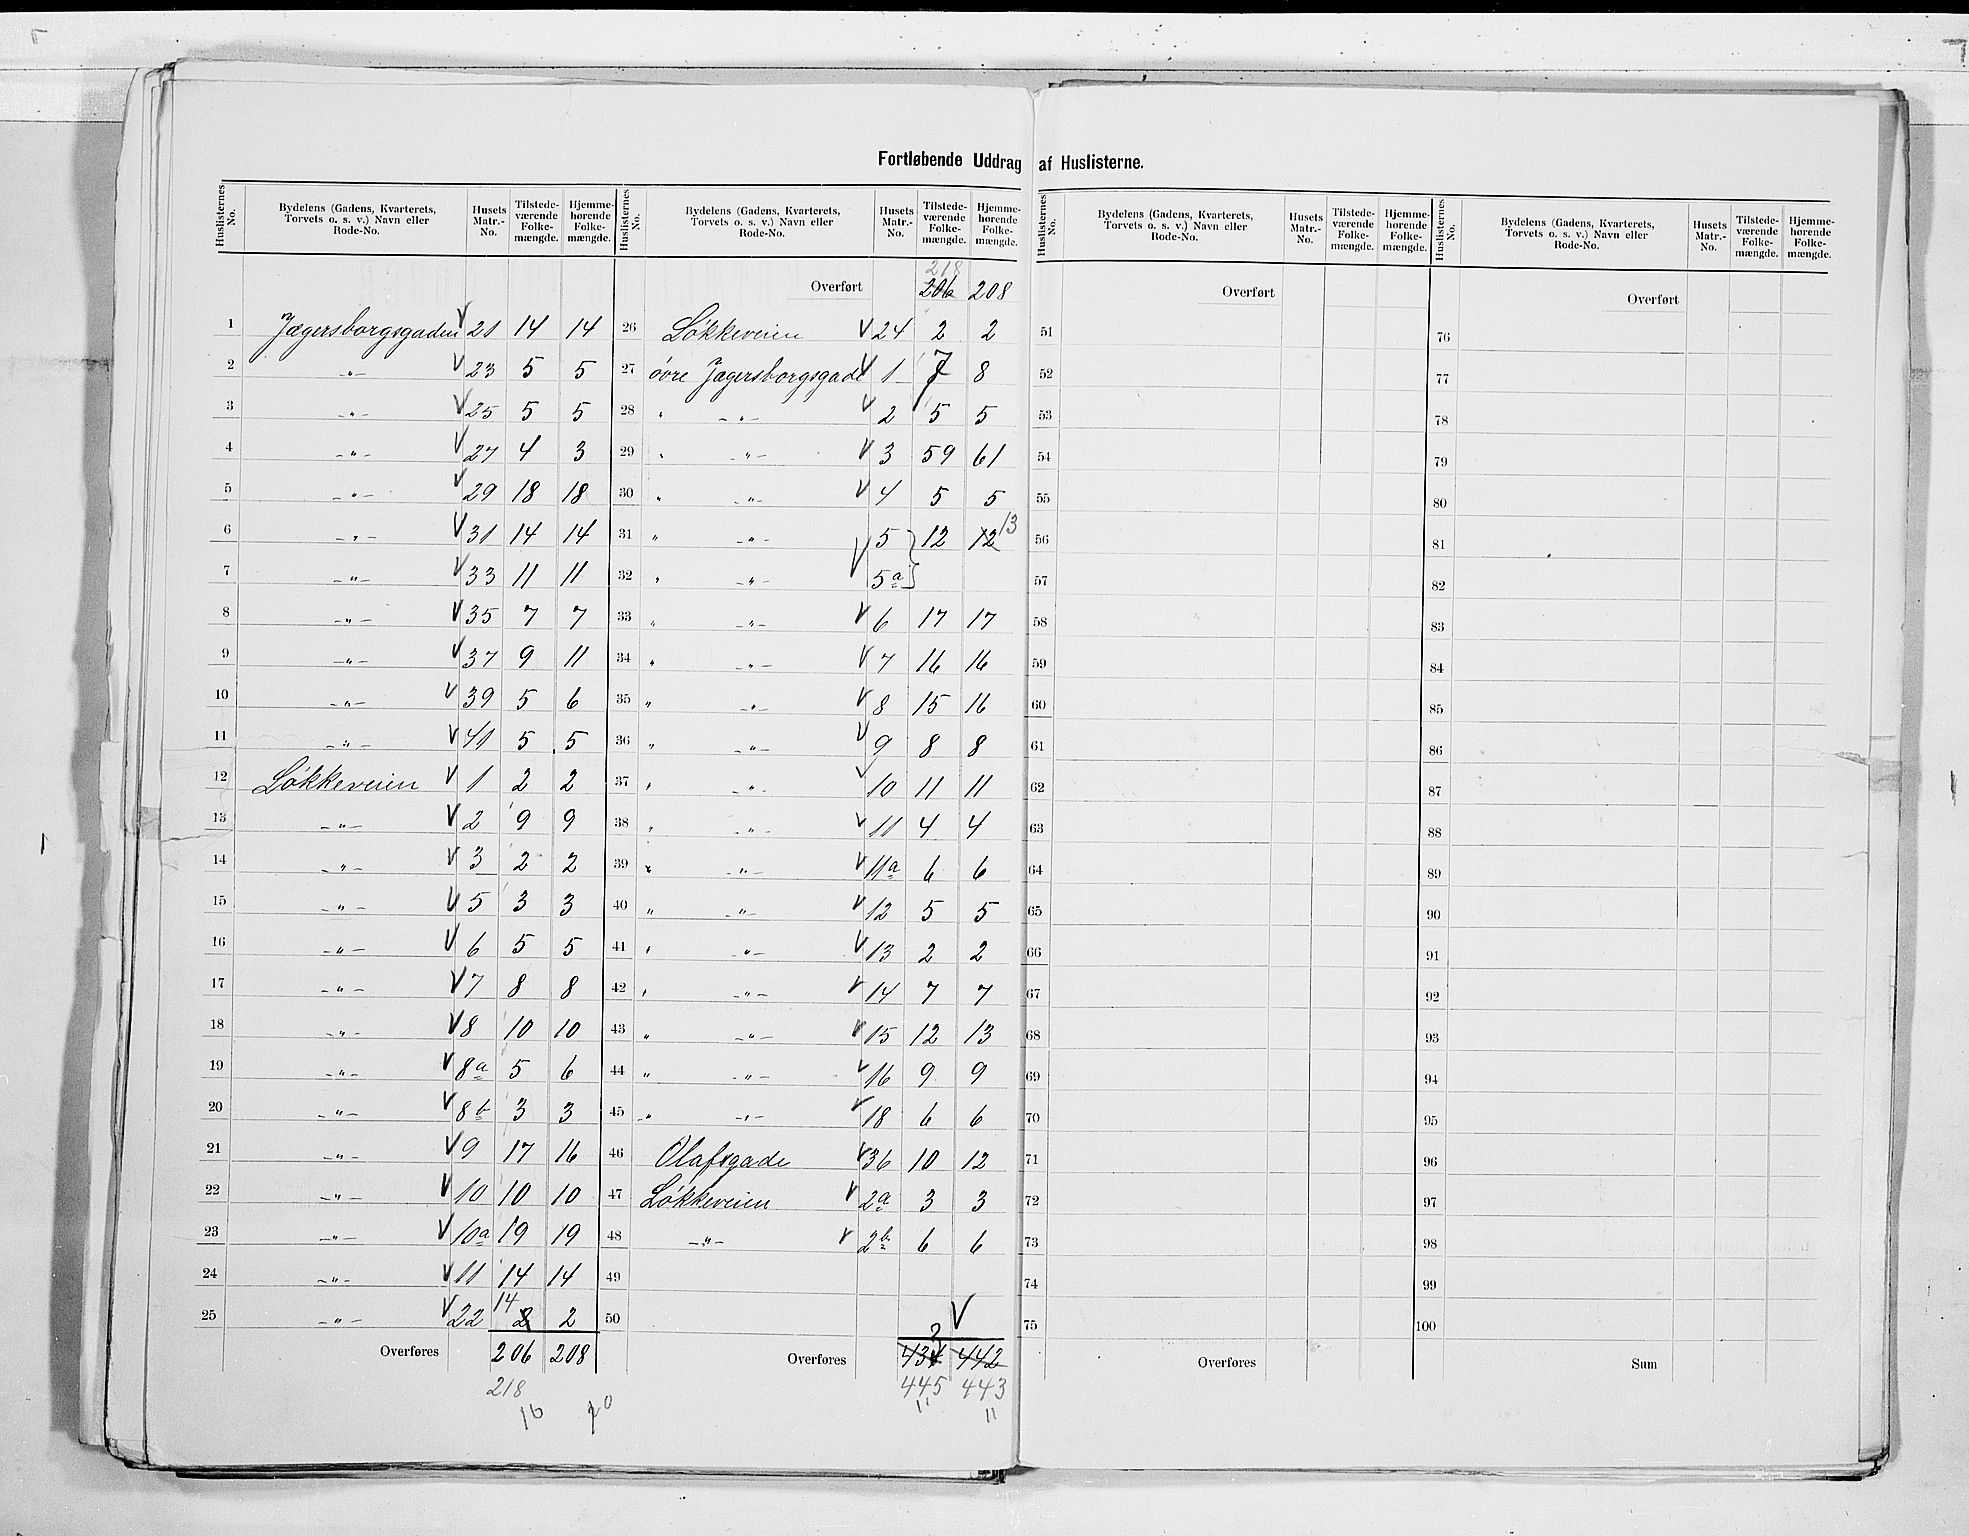 Fortløbende Uddrag af Huslisterne.
Huslisternes No. | Bydelens (Gadens, Kvarterets, Torvets o. s. v.) Navn eller Rode-No. | Husets Matr.-No. | Tilstede-værende Folke-mængde. | Hjemme-hørende Folke-mængde.
1 Jægersborgsgaden V 21 14 14
2 —"— V 23 5 5
3 —"— V 25 5 5
4 —"— V 27 4 3
5 —"— V 29 18 18
6 —"— V 31 14 14
7 —"— V 33 11 11
8 —"— V 35 7 7
9 —"— V 37 9 11
10 —"— V 39 5 6
11 —"— V 41 5 5
12 Løkkeveien V 1 2 2
13 —"— V 2 9 9
14 —"— V 3 2 2
15 —"— V 5 3 3
16 —"— V 6 5 5
17 —"— V 7 8 8
18 —"— V 8 10 10
19 —"— V 8a 5 6
20 —"— V 8b 3 3
21 —"— V 9 17 16
22 —"— V 10 10 10
23 —"— V 10a 19 19
24 —"— V 11 14 14
14
25 —"— V 22 2 2
Overføres 206 208
218
16
Huslisternes No. | Bydelens (Gadens, Kvarterets, Torvets o. s. v.) Navn eller Rode-No. | Husets Matr.-No. | Tilstede-værende Folke-mængde. | Hjemme-hørende Folke-mængde.
218
Overført 206 208
26 Løkkeveien V 24 2 2
27 øvre Jægersborgsgade V 1 7 8
28 " —"— V 2 5 5
29 " —"— V 3 59 61
30 " —"— V 4 5 5
31 " —"— V 5 } 12 12 13
32 " —"— 5a }
33 " —"— V 6 17 17
34 " —"— V 7 16 16
35 " —"— V 8 15 16
36 " —"— V 9 8 8
37 " —"— V 10 11 11
38 " —"— V 11 4 4
39 " —"— V 11a 6 6
40 " —"— V 12 5 5
41 " —"— V 13 2 2
42 " —"— V 14 7 7
43 " —"— V 15 12 13
44 " —"— V 16 9 9
45 " —"— V 18 6 6
46 Olafsgade V 36 10 12
47 Løkkeveien V 2a 3 3
48 —"— V 2b 6 6
49
50 V
3
Overføres 434 442
445 443
11 11
Huslisternes No. | Bydelens (Gadens, Kvarterets, Torvets o. s. v.) Navn eller Rode-No. | Husets Matr.-No. | Tilstede-værende Folke-mængde. | Hjemme-hørende Folke-mængde.
Overført
51
52
53
54
55
56
57
58
59
60
61
62
63
64
65
66
67
68
69
70
71
72
73
74
75
Overføres
Huslisternes No. | Bydelens (Gadens, Kvarterets, Torvets o. s. v.) Navn eller Rode-No. | Husets Matr.-No. | Tilstede-værende Folke-mængde. | Hjemme-hørende Folke-mængde.
Overført
76
77
78
79
80
81
82
83
84
85
86
87
88
89
90
91
92
93
94
95
96
97
98
99
100
Sum